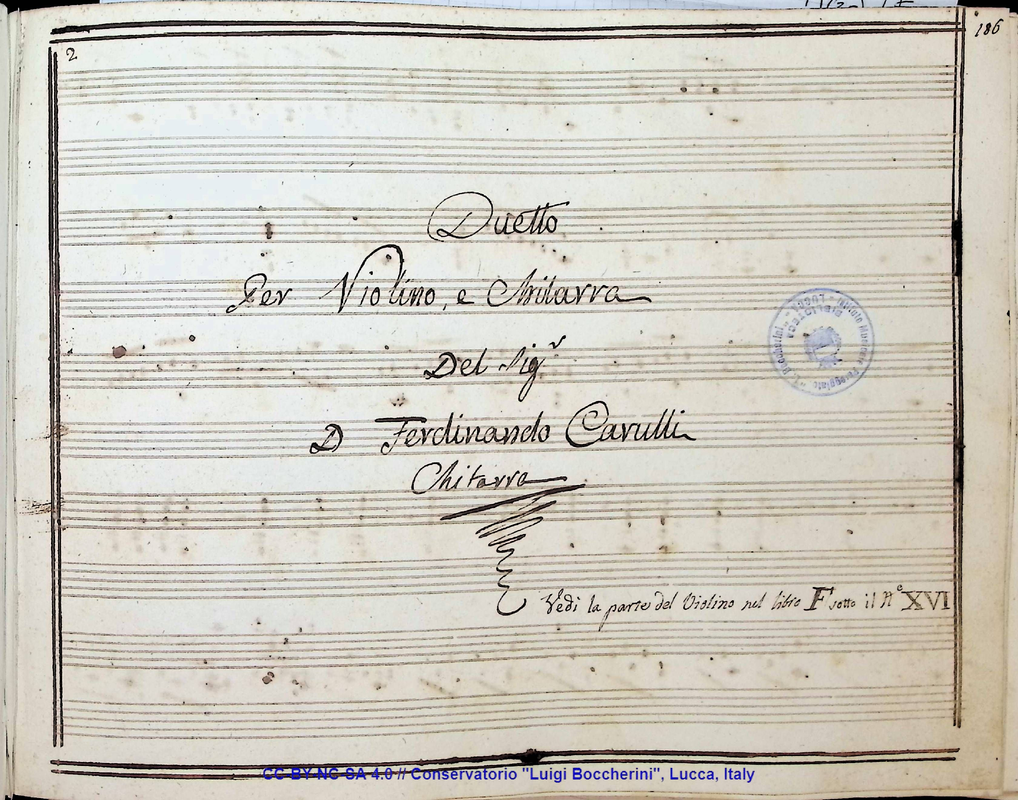 2
186
Duetto
Per Violino, e Chitarra
Del Sigr
D Ferdinando Carulli
Chitarra
Vedi la parte del Violino nel libro F sotto il No XVI
CC-BY-NC-SA 4.0 // Conservatorio "Luigi Boccherini", Lucca, Italy